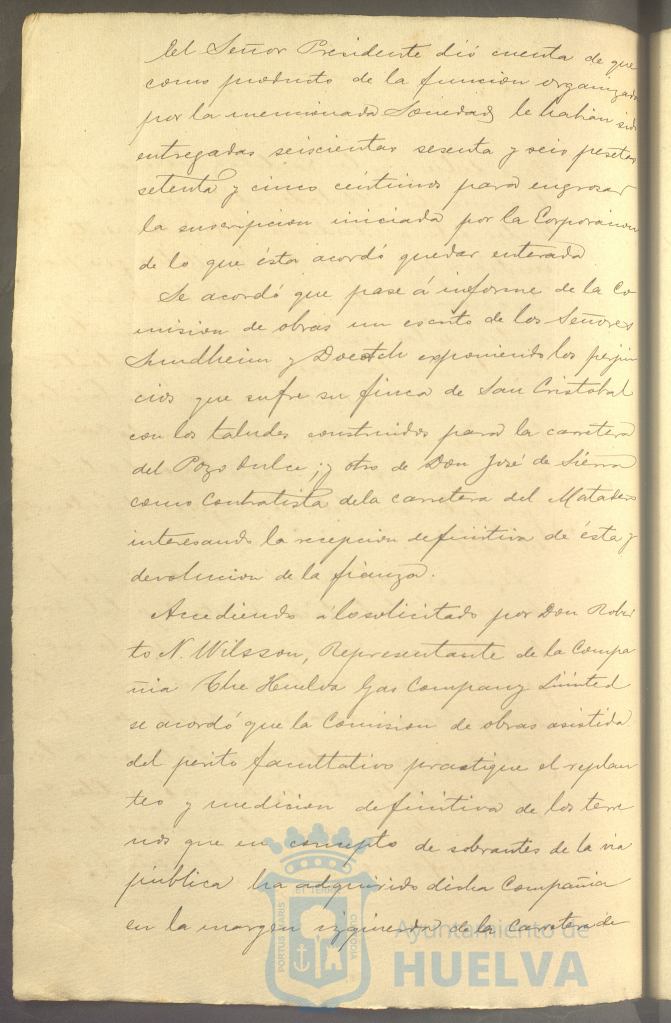 El Señor Presidente dió cuenta de que
como producto de la funcion organizada
por la mencionada Sociedad, le habian sido
entregadas seiscientas sesenta y seis pesetas
setenta y cinco céntimos para engrosar
la suscripcion iniciada por la Corporacion
de lo que ésta acordó quedar enterada
Se acordó que pase á informe de la Co
mision de obras un escrito de los Señores
Sundheim y Doetch exponiendo los perjui
cios que sufre su finca de San Cristobal
con los taludes construidos para la carretera
del Pozo dulce; y otro de Don José de Sierra
como Contratista de la carretera del Matadero
interesando la recepcion definitiva de ésta y
devolucion de la fianza.
Accediendo á lo solicitado por Don Rober
to N. Wilsson, Representante de la Compa
ñia The Huelva Gas Company Limited
se acordó que la Comision de obras asistida
del perito facultativo practique el replan
teo y medicion definitiva de los terre
nos que en concepto de sobrantes de la via
pública ha adquirido dicha Compañia
en la margen izquierda de la Carretera de
PORTUS MARIS ET TERRE CUSTODIA
Ayuntamiento de
HUELVA